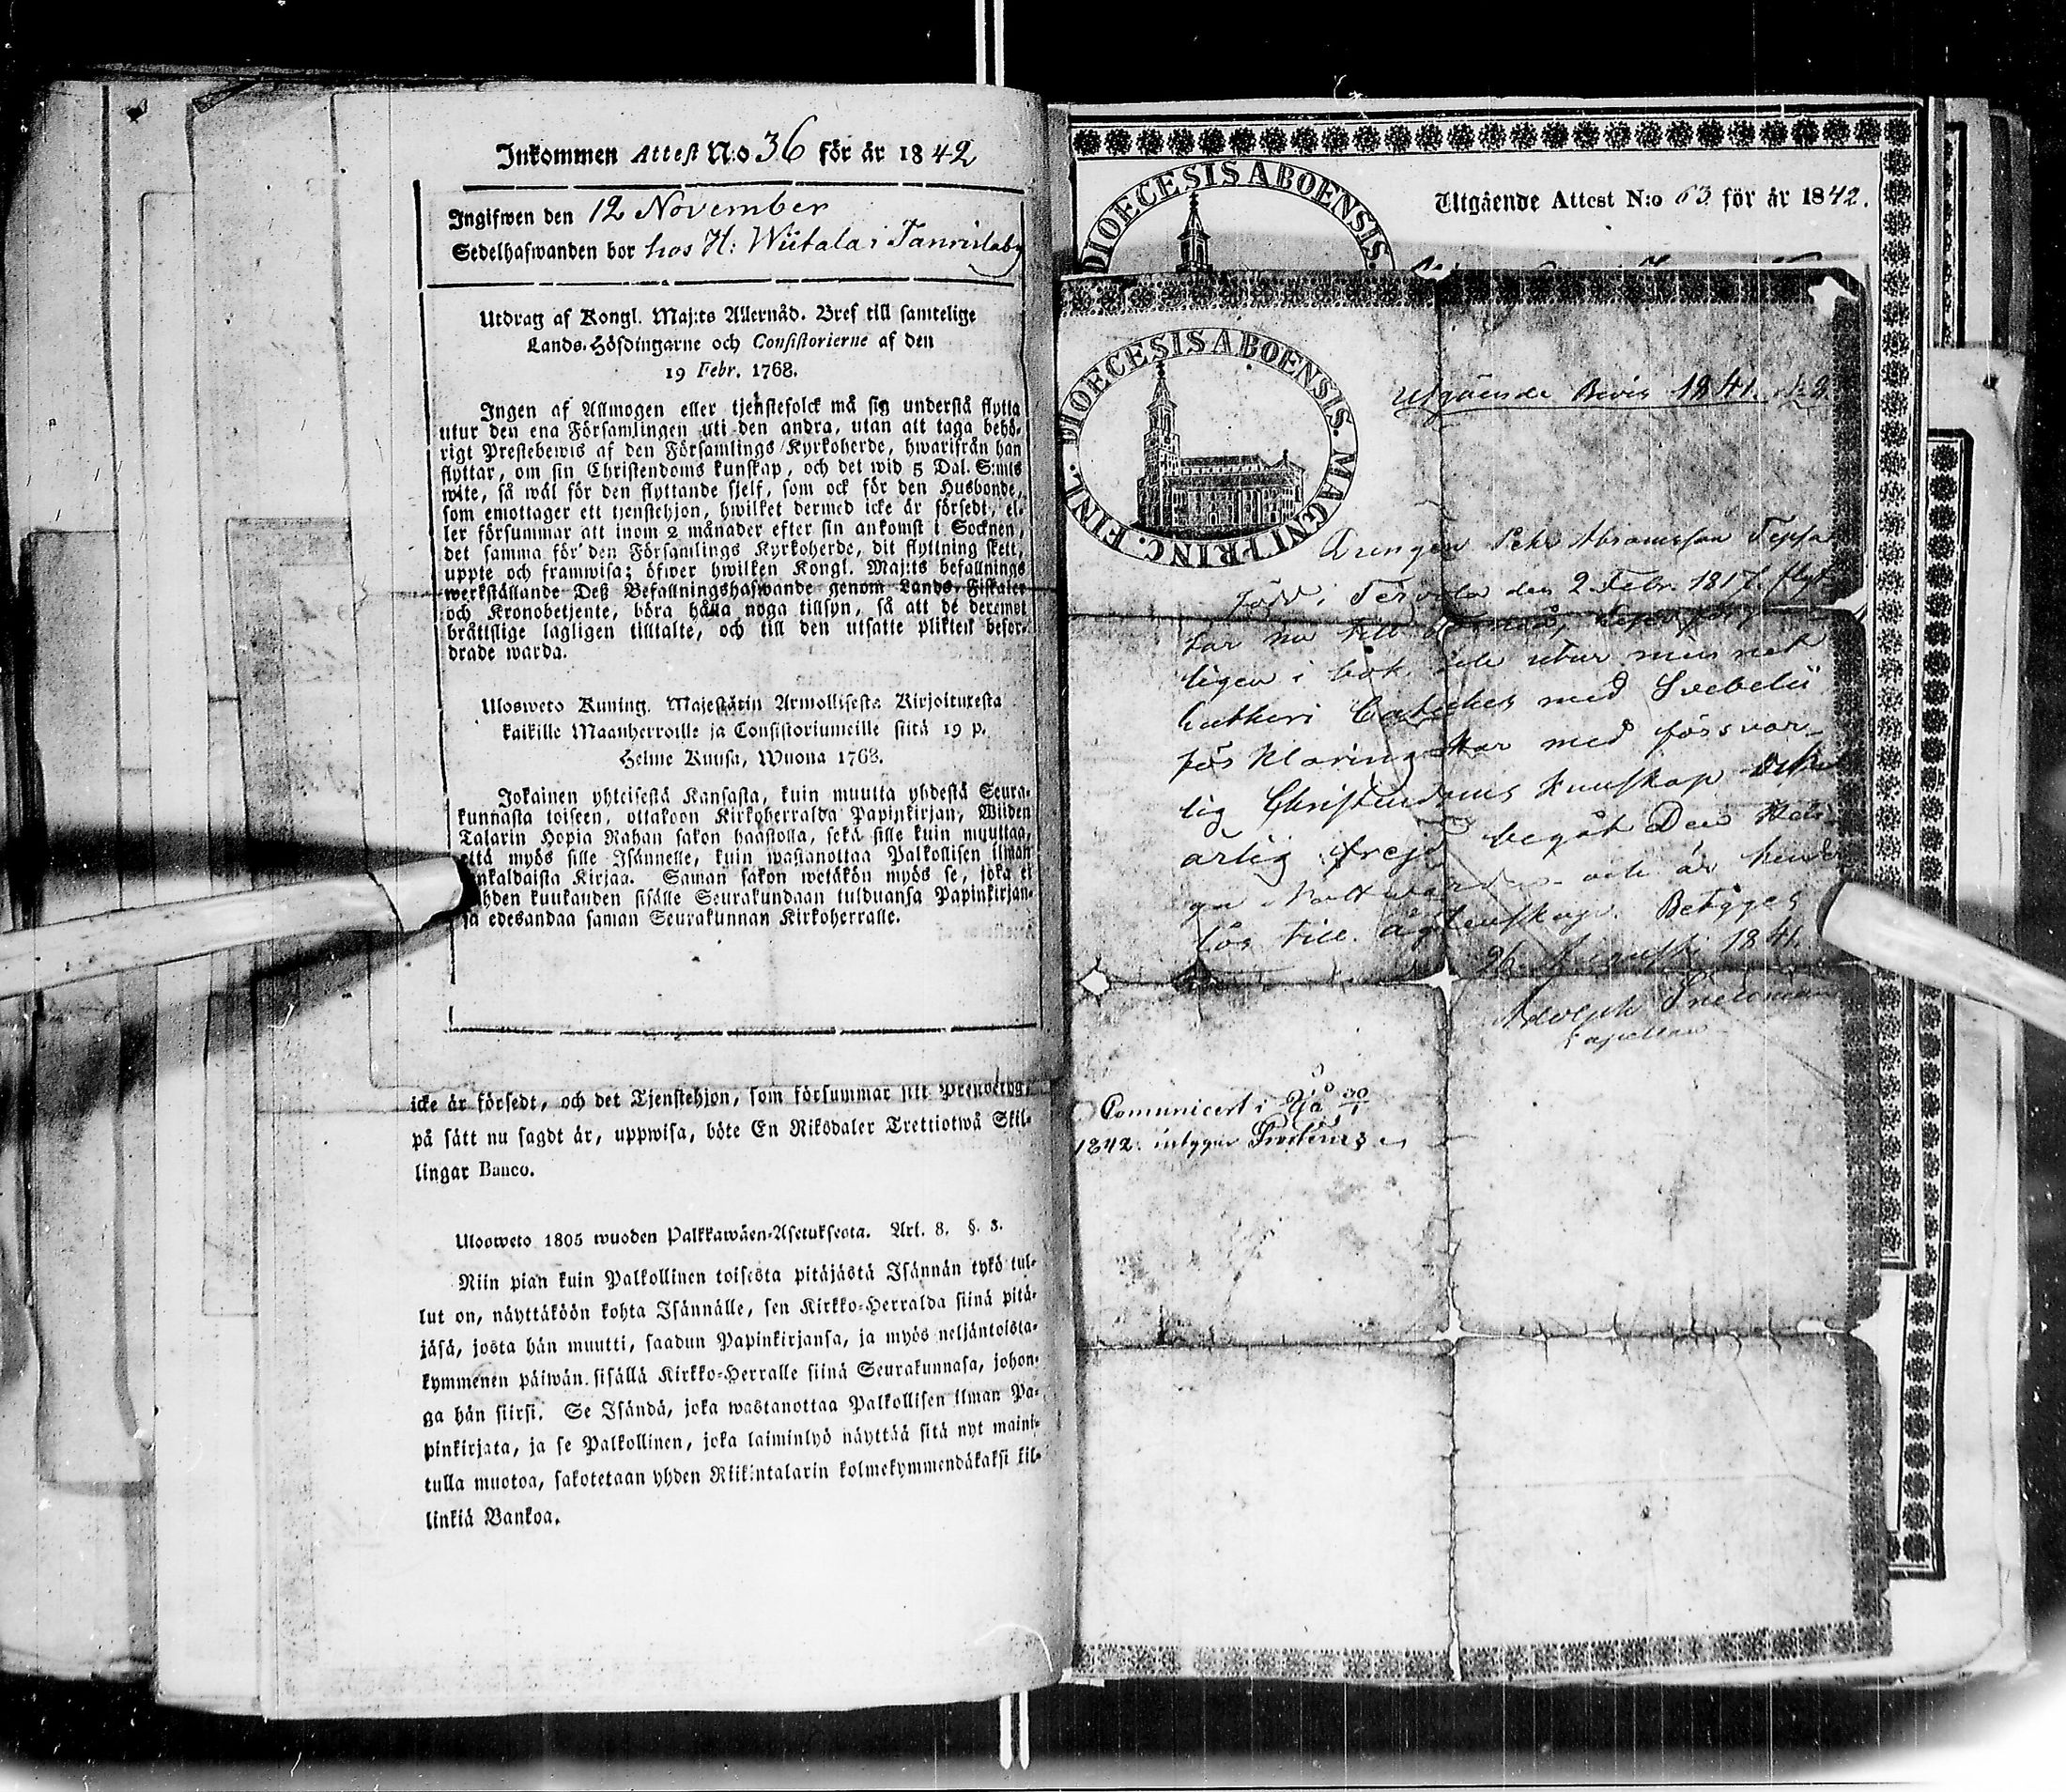 Inkommen Attest N:o 36 för år 1842
Ingifwen den 12 November
Sedelhafwanden bor hos H: Wiitala i
Utdrag af Kongl. Maj:ts Allernåd. Bref till samtelige
Lands-Höfdingarne och Consistorierne af den
19 Febr. 1768.
Ingen af Allmogen eller tjenstefolck må sig understå flytta
utur den ena Församlingen uti den andra, utan att taga behö-
rigt Prestebewis af den Församlings Kyrkoherde, hwarifrån han
flyttar, om sin Christendoms kunskap, och det wid 5 Dal. S:mts
wite, så wäl för den flyttande sjelf, som ock för den Husbonde,
som emottager ett tjenstehjon, hwilket dermed icke är försedt, el-
ler försummar att inom 2 månader efter sin ankomst i Socknen,
det samma för den Församlings Kyrkoherde, dit flyttning skett,
uppte och framwisa; öfwer hwilken Kongl. Maj:ts befallnings
werkställande Deß Befallningshafwande genom Lands-Fiskaler
och Kronobetjente, böra hålla noga tillsyn, så att de deremot
bråttslige lagligen tilltalte, och till den utsatte plikten befor-
drade warda.
Ulosweto Kuning. Majestätin Armollisesta Kirjoituxesta
kaikille Maanherroille ja Consistoriumeille siitä 19 p.
Helme Kuusa, Wuona 1768.
Jokainen yhteisestä Kansasta, kuin muutta yhdestä Seura-
kunnasta toiseen, ottakoon Kirkoherralda Papinkirjan, Wiiden
Talarin Hopia Rahan sakon haastolla, sekä sille kuin muuttaa,
että myös sille Isännelle, kuin wastanottaa Palkollisen ilman
nkaldaista Kirjaa. Saman sakon wetäkön myös se, joka ei
ahden kuukauden sisälle Seurakundaan tulduansa Papinkirjan-
sa edesandaa saman Seurakunnan Kirkoherralle.
icke är försedt, och det Tjenstehjon, som försummar sitt
på sätt nu sagdt är, uppwisa, böte En Riksdaler Trettiotwå Skil-
lingar Banco.
Ulosweto 1805 wuoden Palkkawäen-Asetuksesta. Art. 8. §. 3.
Niin pian kuin Palkollinen toisesta pitäjästä Isännän tykö tul-
lut on, näyttäköön kohta Isännälle, sen Kirkko-Herralda siinä pitä-
jäsä, josta hän muutti, saadun Papinkirjansa, ja myös neljäntoista-
kymmenen päiwän sisällä Kirkko-Herralle siinä Seurakunnasa, johon-
ga hän siirsi. Se Isändä, joka wastanottaa Palkollisen ilman Pa-
pinkirjata, ja se Palkollinen, joka laiminlyö näyttää sitä nyt maini-
tulla muotoa, sakotetaan yhden Riikintalarin kolmekymmendäkaksi kil-
linkiä Bankoa.
DIOECESIS ABOENSIS.
Utgående Attest N:o 63 för år 1842.
DIOECESIS ABOENSIS. MAGNI PRINC. FINL.
Utgående Bevis 1841.
Drengen Abramsson
född i Tervola den 2 Febr. 1817. flyt-
tar nu till
ligen i bok och utur minnet
Lutheri Cateches med Svebelii
förklaring Har med försvar-
lig Christendoms Kunskap
ärlig frejd begåt Den Heli-
ga Nattvarden och är hinder
lös till ägtenskap. Betyges
26 Augusti 1841.
Adolph
Capellan
Comunicert i
1842. intygar